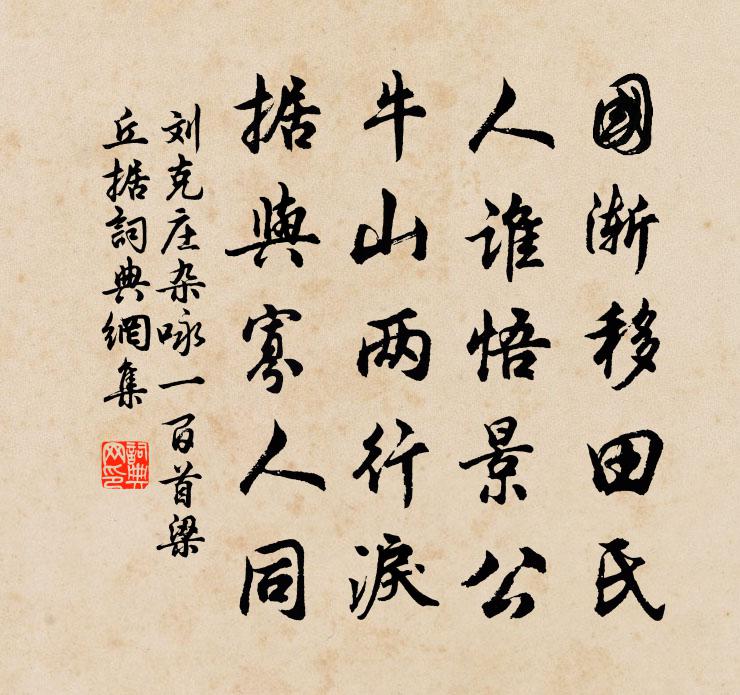 國渐移田氏
人谁悟景公
牛山两行淚
据與寡人同
刘克庄杂咏一百首梁
丘据詞典網集
詞典
网印